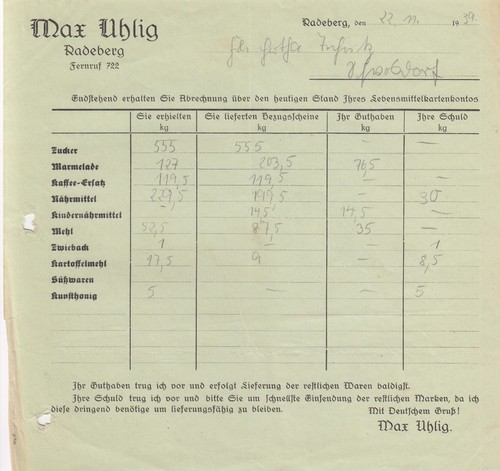 Max Uhlig
Radeberg
Fernruf 722
Radeberg, den 22. 11. 1939.
Endstehend erhalten Sie Abrechnung über den heutigen Stand Ihres Lebensmittelkartenkontos
Sie erhalten kg Sie lieferten Bezugsscheine kg Ihr Guthaben kg Ihre Schuld kg
Zucker 555 555 — —
Marmelade 127 203,5 76,5 —
Kaffee-Ersatz 119,5 119,5 — —
Nährmittel 229,5 199,5 — 30
Kindernährmittel — 14,5 14,5 —
Mehl 52,5 87,5 35 —
Zwieback 1 — — 1
Kartoffelmehl 17,5 9 — 8,5
Süßwaren
Kunsthonig 5 — — 5
Ihr Guthaben trug ich vor und erfolgt Lieferung der restlichen Waren baldigst.
Ihre Schuld trug ich vor und bitte Sie um schnellste Einsendung der restlichen Marken, da ich
diese dringend benötige um lieferungsfähig zu bleiben. Mit Deutschem Gruß!
Max Uhlig.